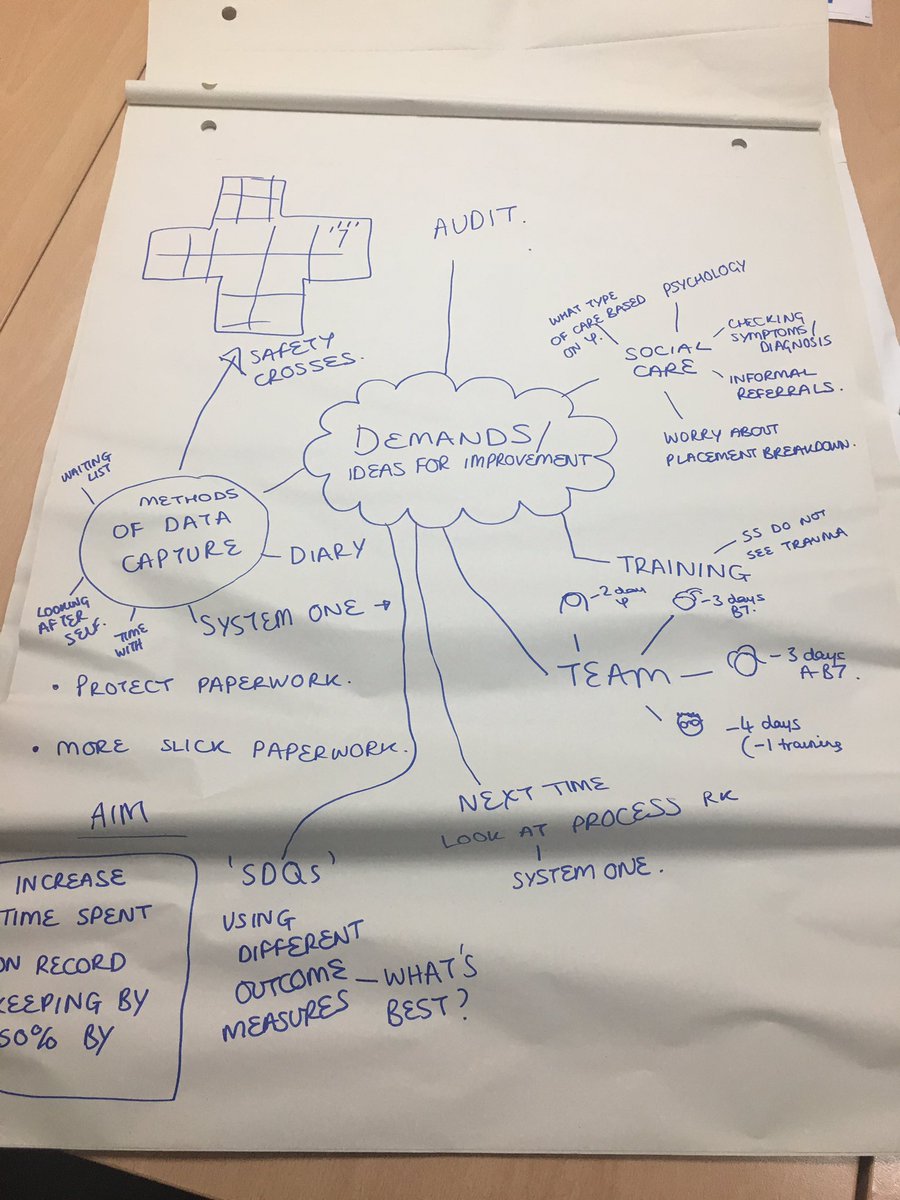 AUDIT.
SAFETY
CROSSES.
PSYCHOLOGY
WHAT TYPE
OF CARE BASED
ON Ψ.
SOCIAL
CARE
CHECKING
SYMPTOMS/
DIAGNOSIS
INFORMAL
REFERRALS.
WORRY ABOUT
PLACEMENT BREAKDOWN.
DEMANDS/
IDEAS FOR IMPROVEMENT
WAITING
LIST
METHODS
OF DATA
CAPTURE
DIARY
LOOKING
AFTER
SELF.
TIME
WITH
SYSTEM ONE →
SS DO NOT
SEE TRAUMA
TRAINING
-2 day
Ψ
-3 days
B7.
TEAM
-3 days
A-B7.
-4 days
(-1 training
• PROTECT PAPERWORK.
• MORE SLICK PAPERWORK.
NEXT TIME
LOOK AT PROCESS RK
SYSTEM ONE.
AIM
INCREASE
TIME SPENT
ON RECORD
KEEPING BY
50% BY
'SDQs'
USING
DIFFERENT
OUTCOME
MEASURES
- WHAT'S
BEST?